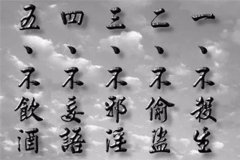 一、不殺生
二、不偷盜
三、不邪淫
四、不妄語
五、不飲酒